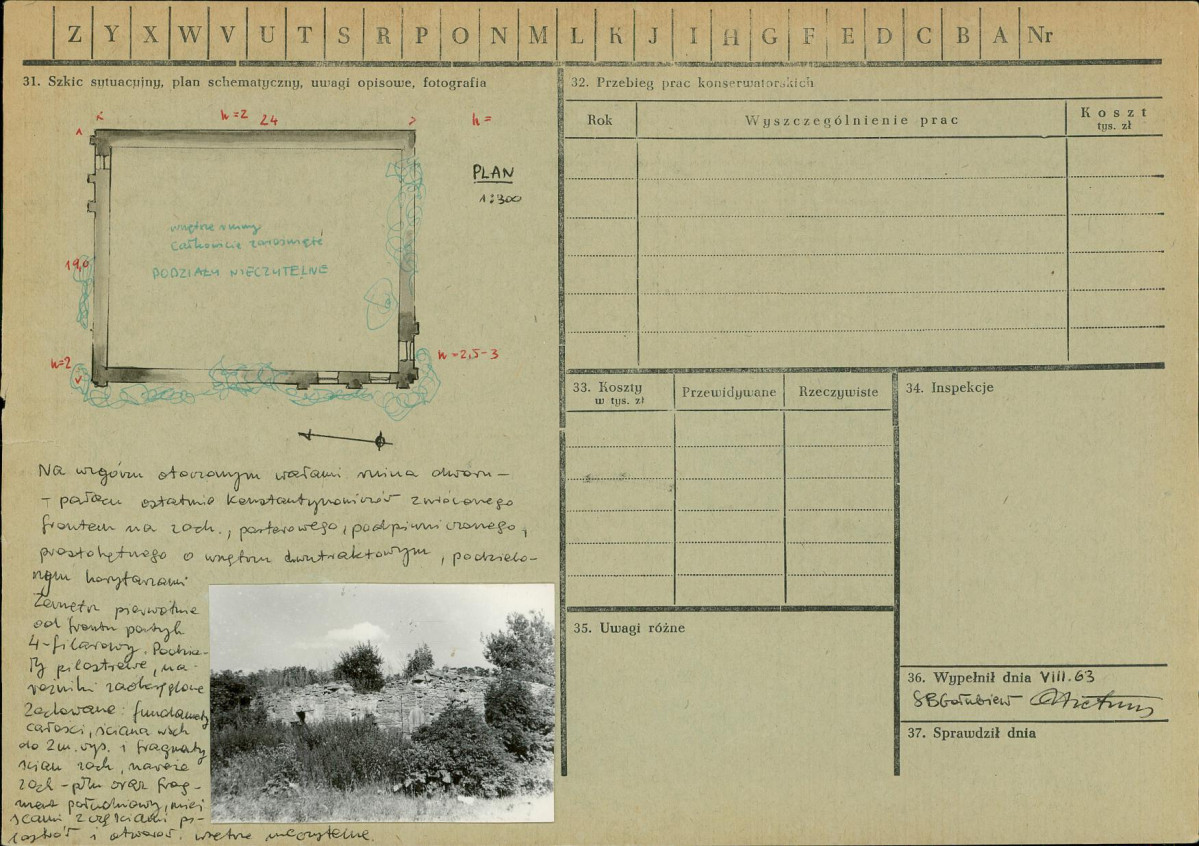 Z Y X W V U T S R P O N M L K J I H G F E D C B A Nr
31. Szkic sytuacyjny, plan schematyczny, uwagi opisowe, fotografia
h=2 24
h=
PLAN
1:300
wnętrze ruiny
całkowicie zarośnięte
PODZIAŁY NIECZYTELNE
19,0
h=2
h=2,5-3
Na wzgórzu otoczonym wałami ruina dworu-
- pałacu ostatnio Konstantynowiczów zwróconego
frontem na zach., parterowego, podpiwniczonego,
prostokątnego o wnętrzu dwutraktowym, podzielo-
nym korytarzami
Zewnątrz pierwotnie
od frontu portyk
4-filarowy. Podzia-
ły pilastrowe, na-
rożniki zaokrąglone
Zachowane: fundamenty
całości, ściana wsch
do 2m. wys. i fragmenty
ścian zach, naroże
zach-płn oraz frag-
ment południowy, miej
scami z częściami pi-
lastrów i otworów. wnętrze nieczytelne.
32. Przebieg prac konserwatorskich
Rok Wyszczególnienie prac Koszt
tys. zł
33. Koszty
w tys. zł
Przewidywane Rzeczywiste
34. Inspekcje
35. Uwagi różne
36. Wypełnił dnia VIII.63
37. Sprawdził dnia